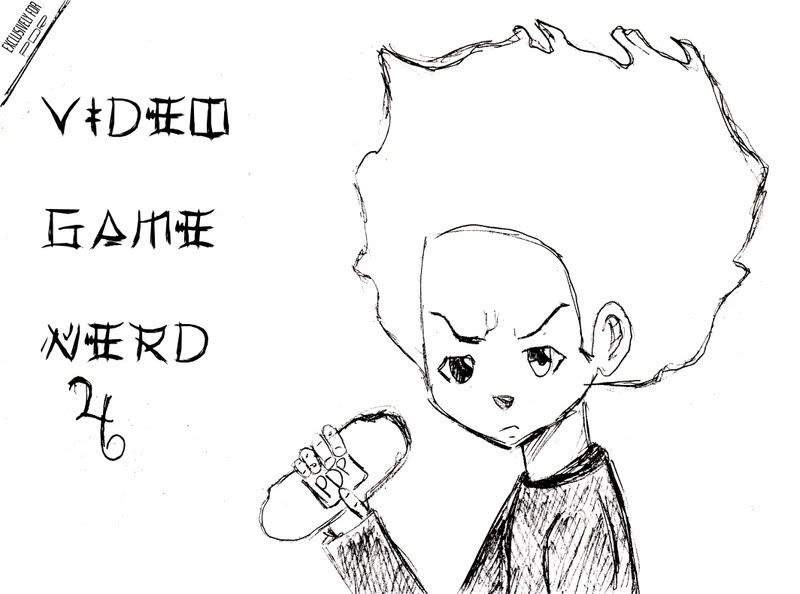 EXCLUSIVELY FOR
PDP
VIDEO
GAME
NERD
4
PDP